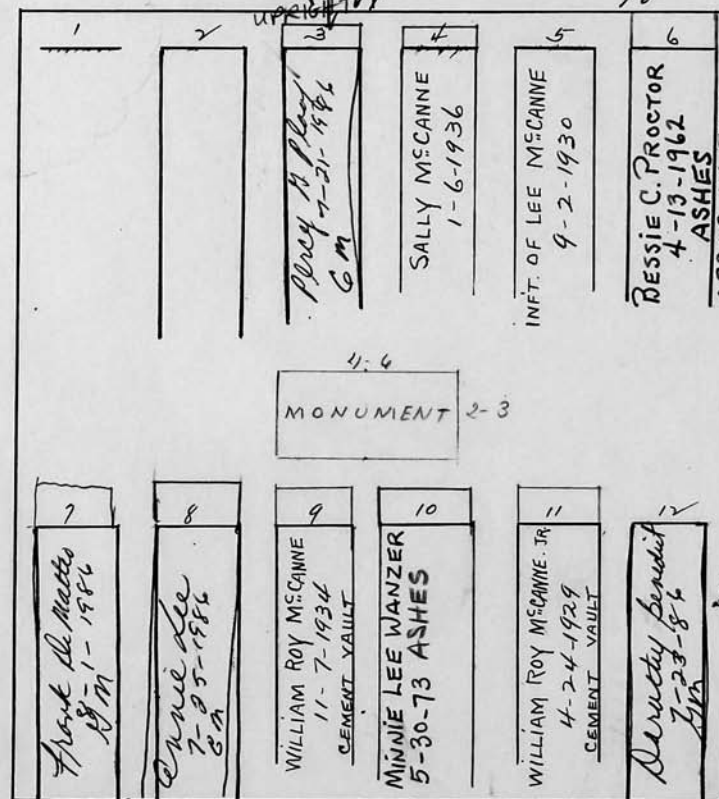 UPRIGHT
1 2 3 4 5 6
Percy G
7-21-1986
G M
SALLY McCANNE
1-6-1936
INFT. OF LEE McCANNE
9-2-1930
BESSIE C. PROCTOR
4-13-1962
ASHES
4-6
MONUMENT 2-3
7 8 9 10 11 12
Frank De Matteo
8-1-1986
G M
Annie Lee
7-25-1986
G M
WILLIAM ROY McCANNE
11-7-1934
CEMENT VAULT
MINNIE LEE WANZER
5-30-73 ASHES
WILLIAM ROY McCANNE. JR.
4-24-1929
CEMENT VAULT
Benedict
7-23-86
G M